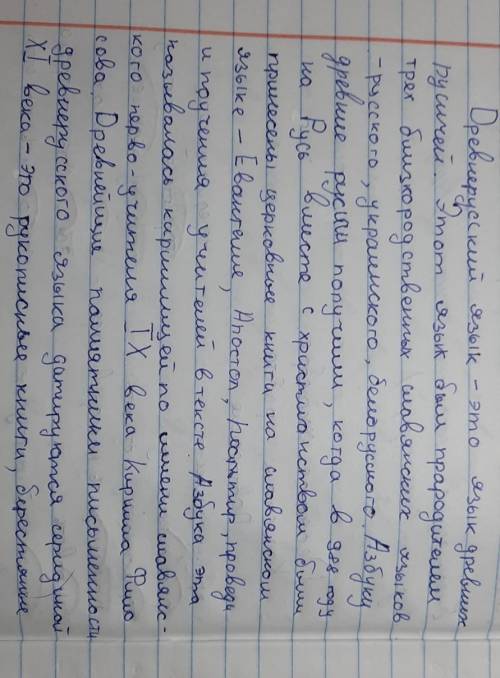 Древнерусский язык – это язык древних
русичей. Этот язык был прародителем
трех близкородственных славянских языков
- русского, украинского, белорусского. Азбуку
древние русичи получили, когда в 988 году
на Русь вместе с христианством были
принесены церковные книги на славянском
языке – Евангелие, Апостол, Псалтырь, проведи
и поучения учителей в тексте Азбука эта
называлась кириллицей по имени славянс-
кого перво-учителя IX века Кирилла Фило
сова. Древнейшие памятники письменности
древнерусского языка датируются серединой
XI века – это рукописные книги, берестяные